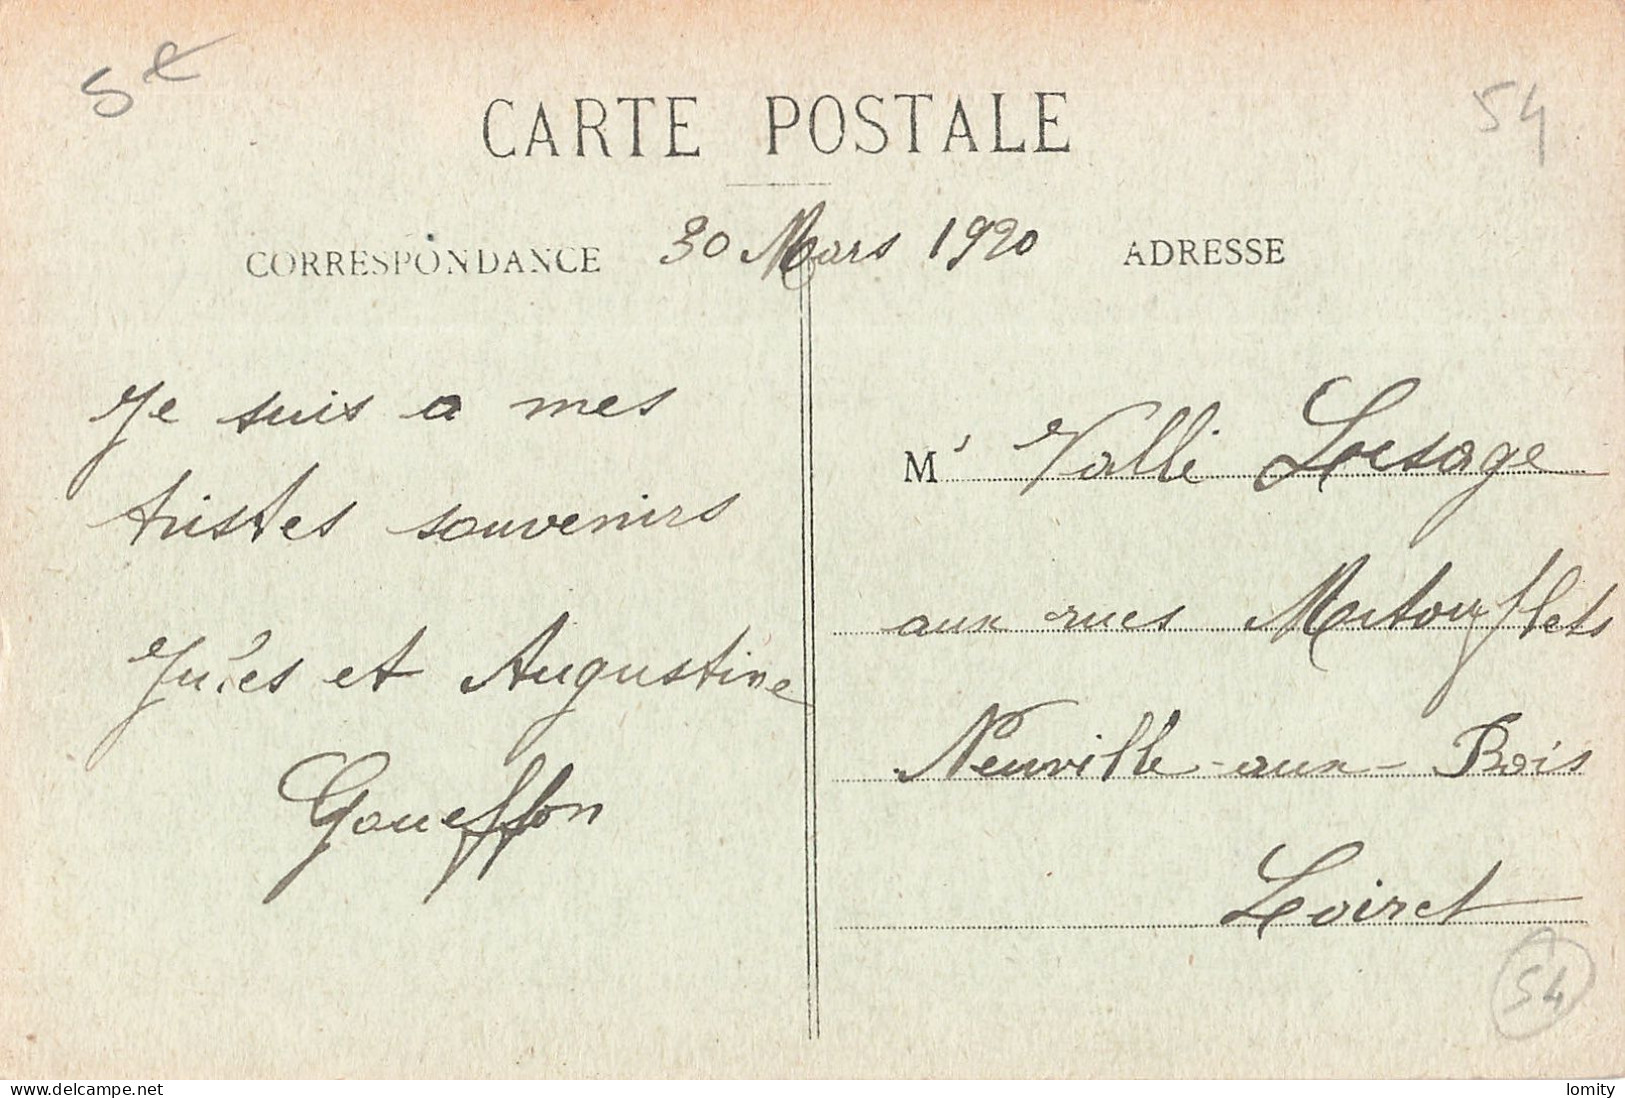 5e
54
CARTE POSTALE
CORRESPONDANCE
30 Mars 1920
ADRESSE
Je suis a mes
tristes souvenirs
Jules et Augustine
Goueffon
Mr Vallé Lesage
aux rues
Neuville-aux-Bois
Loiret
54
www.delcampe.net
lomity